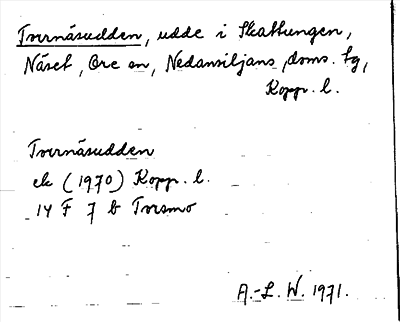 Tvernäsudden, udde i Skattungen,
Näset, Ore sn, Nedansiljans doms. tg,
Kopp. l.
Tvernäsudden
ek (1970) Kopp. l.
14 F 7 b Torsmo
A.-L. W. 1971.